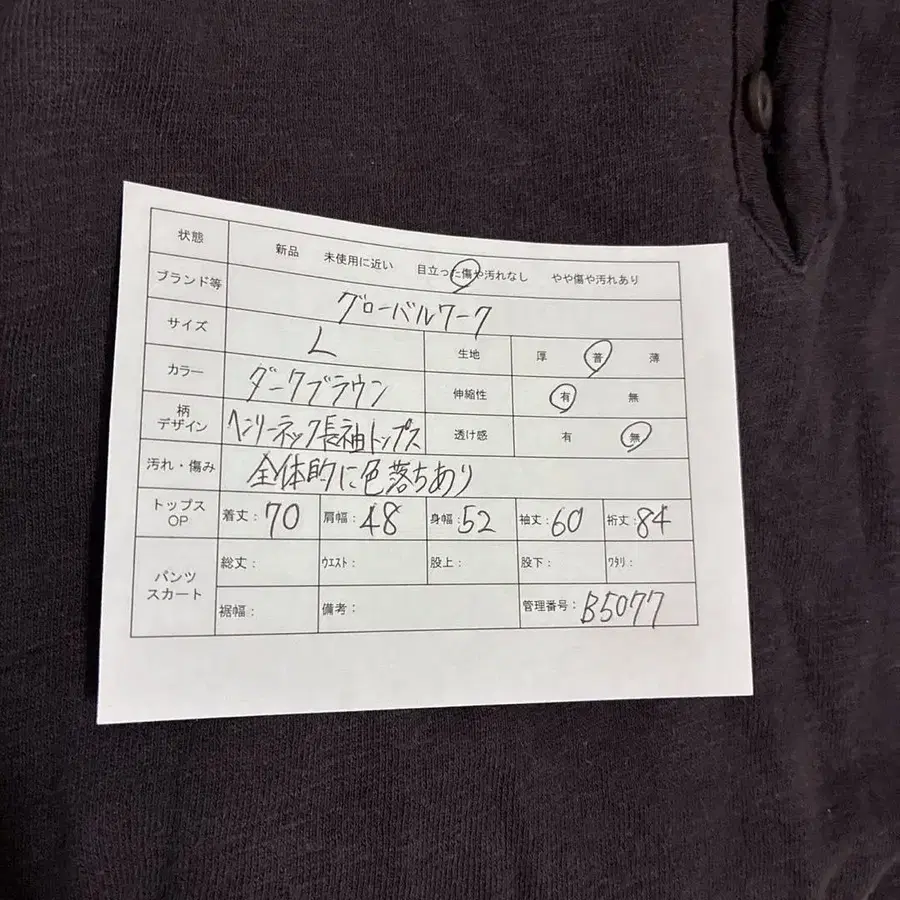 状態 新品 未使用に近い 目立った傷や汚れなし やや傷や汚れあり
ブランド等 グローバルワーク
サイズ L 生地 厚 普 薄
カラー ダークブラウン 伸縮性 有 無
柄
デザイン ヘンリーネック長袖トップス 透け感 有 無
汚れ・傷み 全体的に色落ちあり
トップス
OP 着丈:70 肩幅:48 身幅:52 袖丈:60 裄丈:84
パンツ
スカート 総丈: ウエスト: 股上: 股下: ワタリ:
裾幅: 備考: 管理番号:B5077